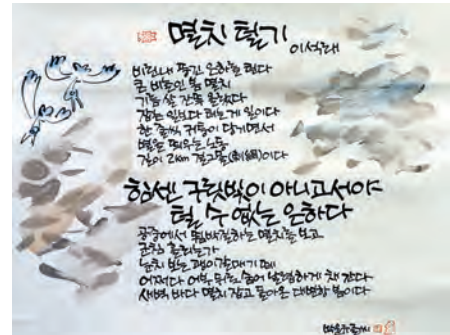 멸치 털기
이석래
비린내 풍긴 은하를 턴다
큰 비늘인 봄 멸치
기름 살 잔뜩 올랐다
잡는 일보다 터는 게 일이다
한 줄씩 귀퉁이 당기면서
별을 띄우는 노동
길이 2km 걸그물(刺網)이다
힘센 구릿빛이 아니고서야
털 수 없는 은하다
공중에서 뜀박질하는 멸치를 보고
군침 흘리는가
눈치 보는 괭이갈매기 떼
어쩌다 어부 뒤로 숨어 날렵하게 채 간다
새벽 바다 멸치 잡고 돌아온 대변항 봄이다